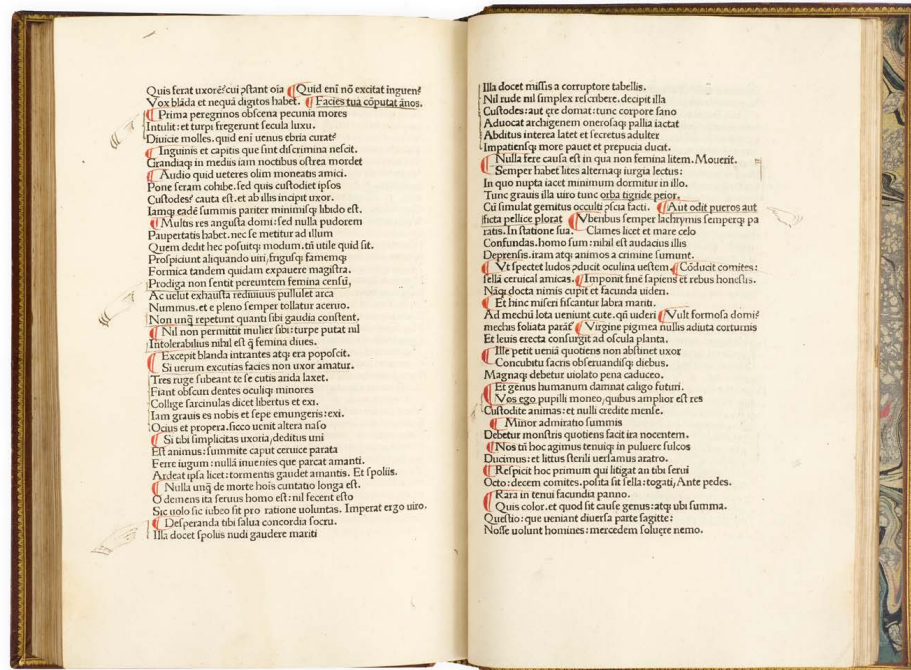 Quis ferat uxorē? cui ꝓstant oīa ¶ Quid enī nō excitat inguen?
Vox blāda et nequā digitos habet. ¶ Facies tua cōputat ānos.
¶ Prima peregrinos obscena pecunia mores
Intulit: et turpi fregerunt secula luxu.
Diuicie molles. quid enī uenus ebria curat?
¶ Inguinis et capitis que sint discrimina nescit.
Grandiaqȝ in mediis iam noctibus ostrea mordet
¶ Audio quid ueteres olim moneatis amici.
Pone seram cohibe. sed quis custodiet ipsos
Custodes? cauta est. et ab illis incipit uxor.
Iamqȝ eadē summis pariter minimisqȝ libido est.
¶ Multis res angusta domi: sed nulla pudorem
Paupertatis habet. nec se metitur ad illum
Quem dedit hec posuitqȝ modum. tn̄ utile quid sit.
Prospiciunt aliquando uiri, frigusqȝ famemqȝ
Formica tandem quidam expauere magistra.
Prodiga non sentit pereuntem femina censū,
Ac uelut exhausta rediuiuus pullulet arca
Nummus. et e pleno semper tollatur aceruo.
Non unqȝ repetunt quanti sibi gaudia constent.
¶ Nil non permittit mulier sibi: turpe putat nil
Intolerabilius nihil est qȝ femina diues.
¶ Excepit blanda intrantes atqȝ era poposcit.
¶ Si uerum excutias facies non uxor amatur.
Tres ruge subeant te se cutis arida laxet.
Fiant obscuri dentes oculiqȝ minores
Collige sarcinulas dicet libertus et exi.
Iam grauis es nobis et sepe emungeris: exi.
Ocius et propera. sicco uenit altera naso
¶ Si tibi simplicitas uxoria, deditus uni
Est animus: summite caput ceruice parata
Ferre iugum: nullā inuenies que parcat amanti.
Ardeat ipsa licet: tormentis gaudet amantis. Et spoliis.
¶ Nulla unqȝ de morte hoīs cuntatio longa est.
O demens ita seruus homo est: nil fecerit esto
Sic uolo sic iubeo sit pro ratione uoluntas. Imperat ergo uiro.
¶ Desperanda tibi salua concordia socru.
Illa docet spoliis nudi gaudere mariti
Illa docet missis a corruptore tabellis.
Nil rude nil simplex rescribere. decipit illa
Custodes: aut ere domat: tunc corpore sano
Aduocat archigenem onerosaqȝ pallia iactat
Abditus interea latet et secretus adulter
Impatiensqȝ more pauet et prepucia ducit.
¶ Nulla fere causa est in qua non femina litem. Mouerit.
Semper habet lites alternaqȝ iurgia lectus:
In quo nupta iacet minimum dormitur in illo.
Tunc grauis illa uiro tunc orba tigride peior.
Cū simulat gemitus occulti ꝓscia facti. ¶ Aut odit pueros aut
ficta pellice plorat ¶ Vberibus semper lachrymis semperqȝ pa
ratis. In statione sua. Clames licet et mare celo
Confundas. homo sum: nihil est audacius illis
Deprensis. iram atqȝ animos a crimine sumunt.
¶ Vt spectet ludos ꝓducit oculina uestem. ¶ Cōducit comites:
sellā ceruical amicas. ¶ Imponit finē sapiens et rebus honestis.
Nāqȝ docta nimis cupit et facunda uideri.
¶ Et hinc miseri fiscantur labra mariti.
Ad mechū lota ueniunt cute. qn̄ uideri ¶ Vult formosa domi?
mechis foliata parāt ¶ Virgine pigmea nullis adiuta coturnis
Et leuis erecta consurgit ad oscula planta.
¶ Ille petit ueniā quotiens non abstinet uxor
Concubitu sacris obseruandisqȝ diebus.
Magnaqȝ debetur uiolato pena caduceo.
¶ Et genus humanum damnat caligo futuri.
¶ Vos ego pupilli moneo, quibus amplior est res
Custodite animas: et nulli credite mense.
¶ Minor admiratio summis
Debetur monstris quotiens facit ira nocentem.
¶ Nos tn̄ hoc agimus tenuiqȝ in puluere sulcos
Ducimus: et littus sterili uersamus aratro.
¶ Respicit hoc primum qui litigat an tibi serui
Octo: decem comites. posita sit sella: togati, Ante pedes.
¶ Rara in tenui facundia panno.
¶ Quis color. et quod sit cause genus: atqȝ ubi summa.
Questio: que ueniant diuersa parte sagitte:
Nosse uolunt homines: mercedem soluere nemo.